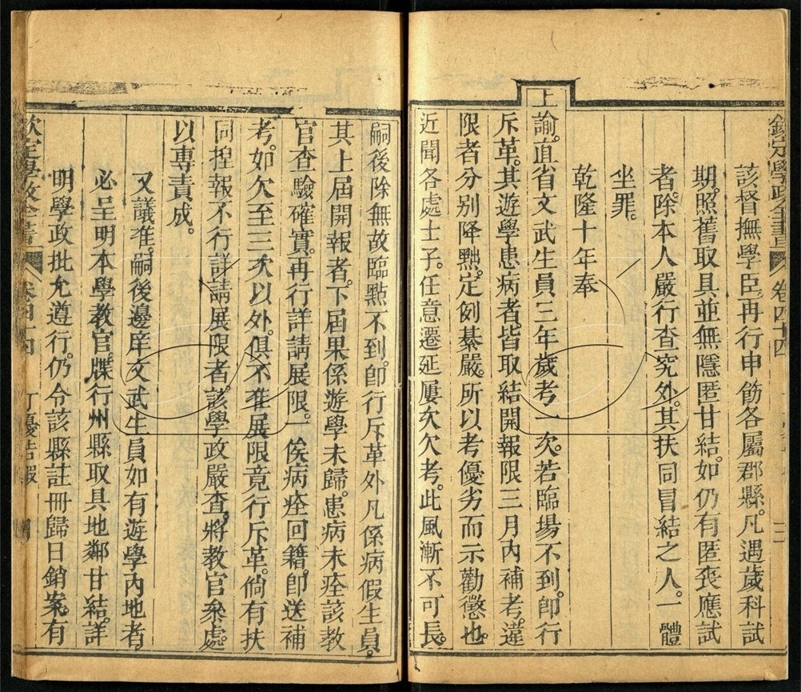 欽定學政全書 卷四十四 三
該督撫學臣再行申飭各屬郡縣凡遇歲科試
期照舊取具並無隱匿甘結如仍有匿喪應試
者除本人嚴行查究外其扶同冒結之人一體
坐罪
乾隆十年奉
上諭直省文武生員三年歲考一次若臨場不到卽行
斥革其遊學患病者皆取結開報限三月內補考違
限者分別降黜定例綦嚴所以考優劣而示勸懲也
近聞各處士子任意遷延屢次欠考此風漸不可長
嗣後除無故臨點不到卽行斥革外凡係病假生員
其上屆開報者下屆果係遊學未歸患病未痊該教
官查驗確實再行詳請展限一俟病痊回籍卽送補
考如欠至三次以外俱不准展限竟行斥革倘有扶
同捏報不行詳請展限者該學政嚴查將教官叅處
以專責成
又議准嗣後邊庠文武生員如有遊學內地者
必呈明本學教官牒行州縣取具地鄰甘結詳
明學政批允遵行仍令該縣註冊歸日銷案有
欽定學政全書 卷四十四 丁憂告假